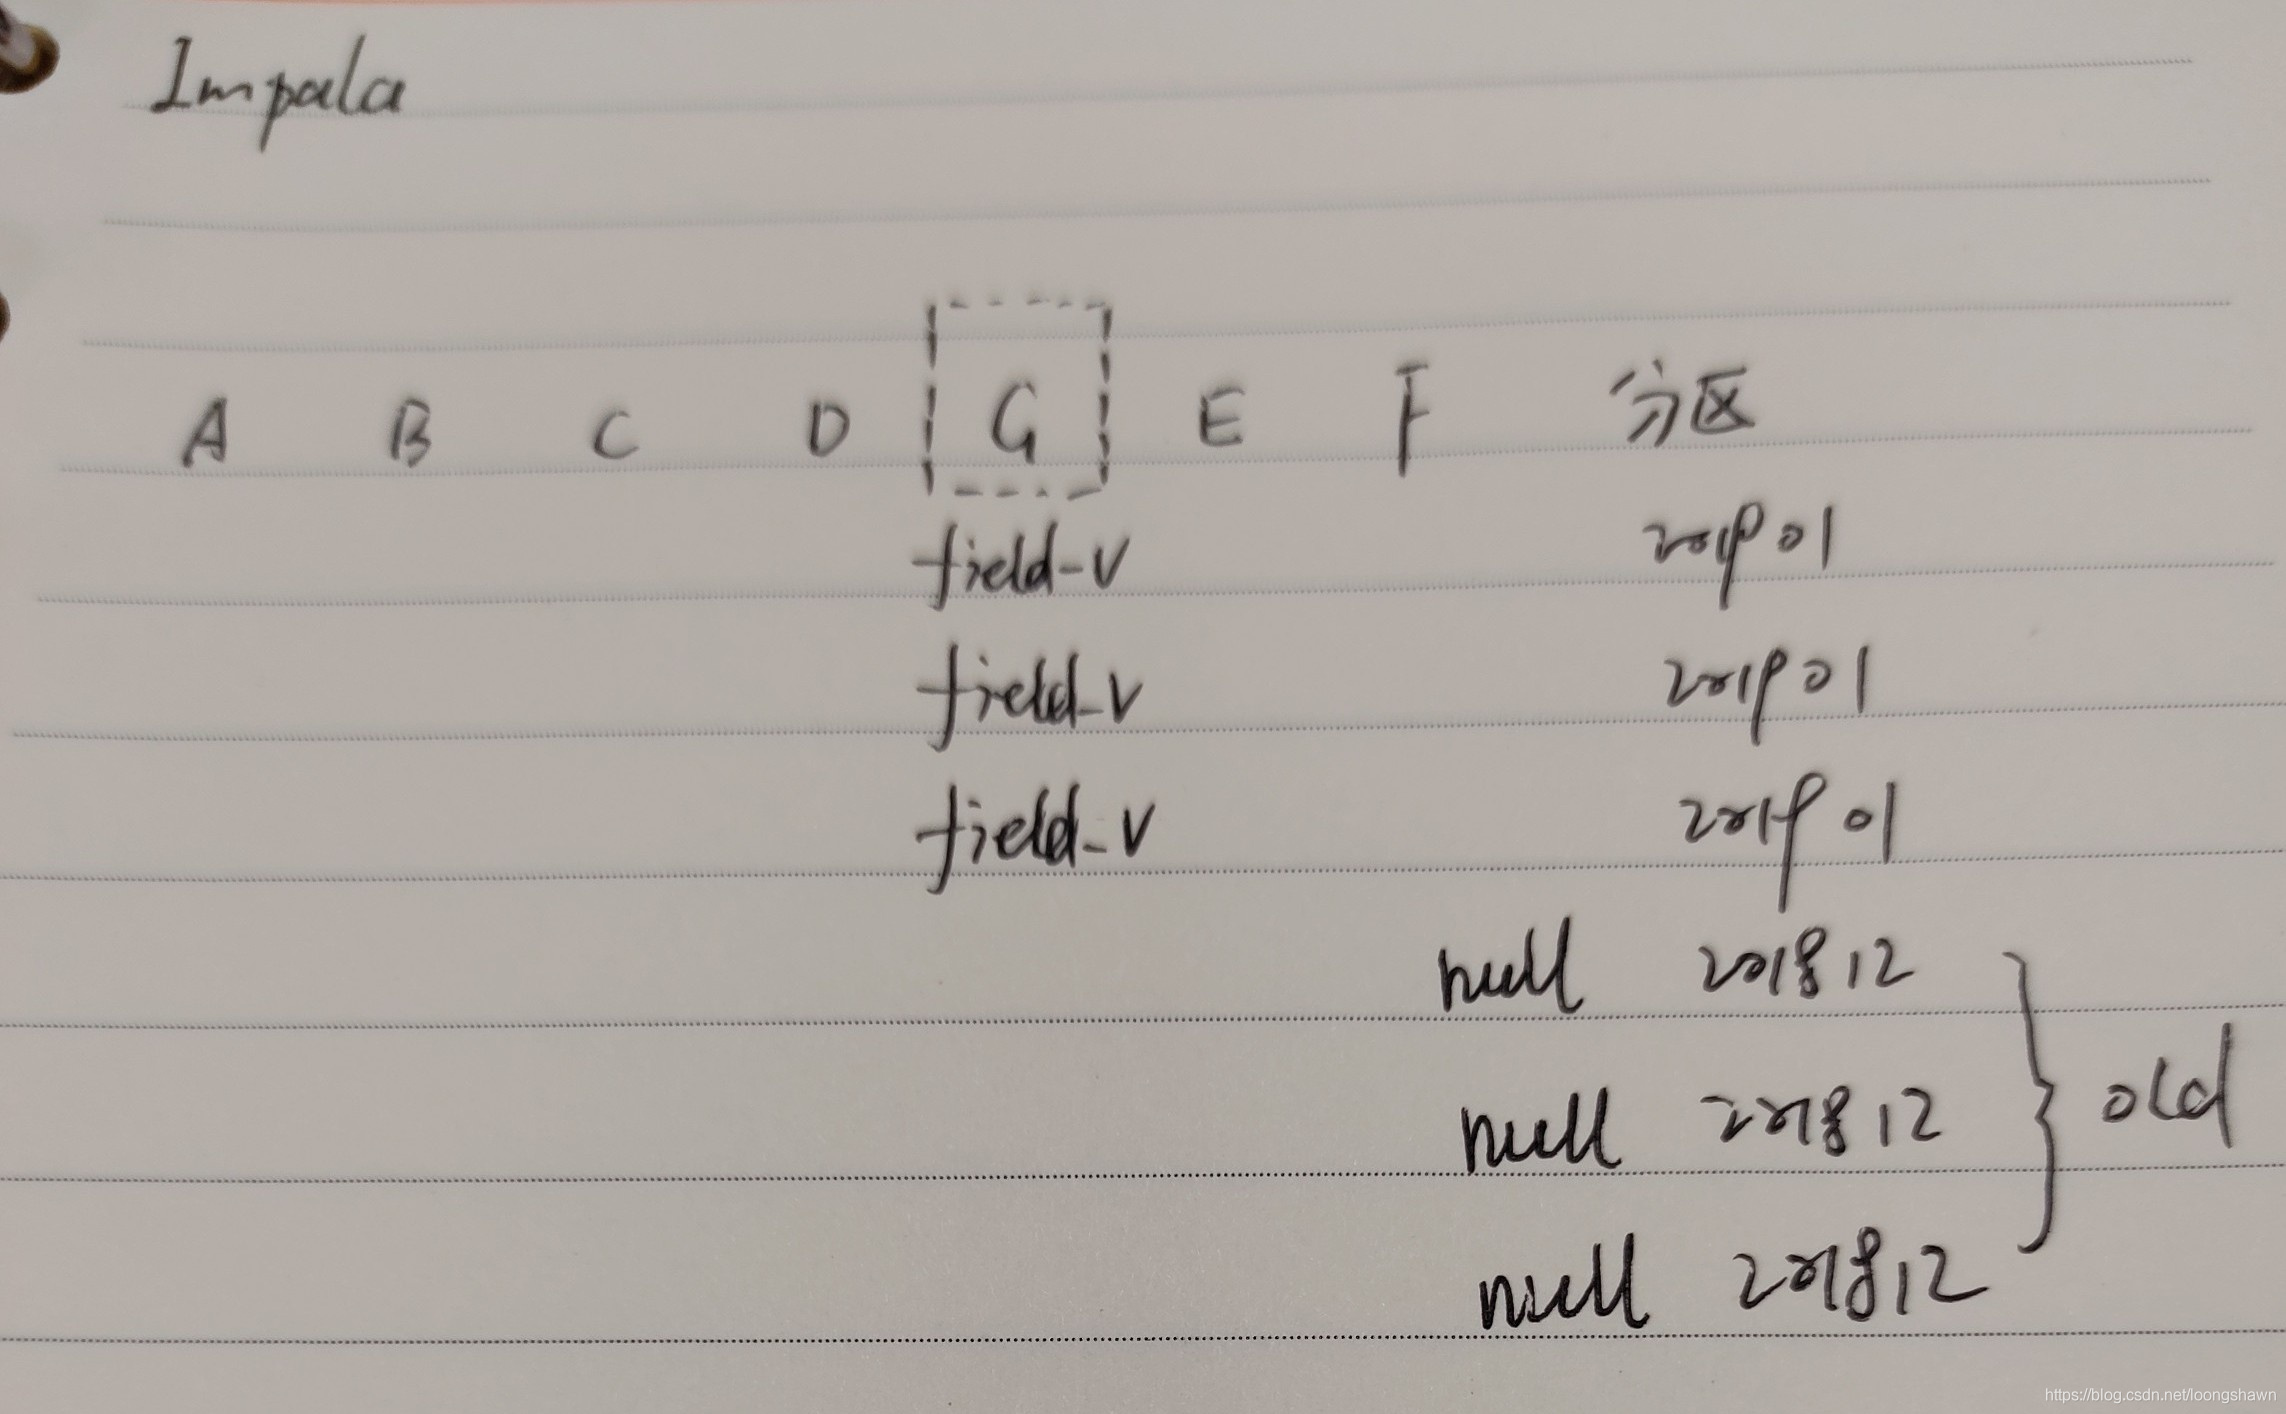 Impala
A B C D G E F 分区
field-v 201901
field-v 201901
field-v 201901
null 201812
null 201812 old
null 201812
https://blog.csdn.net/loongshawn